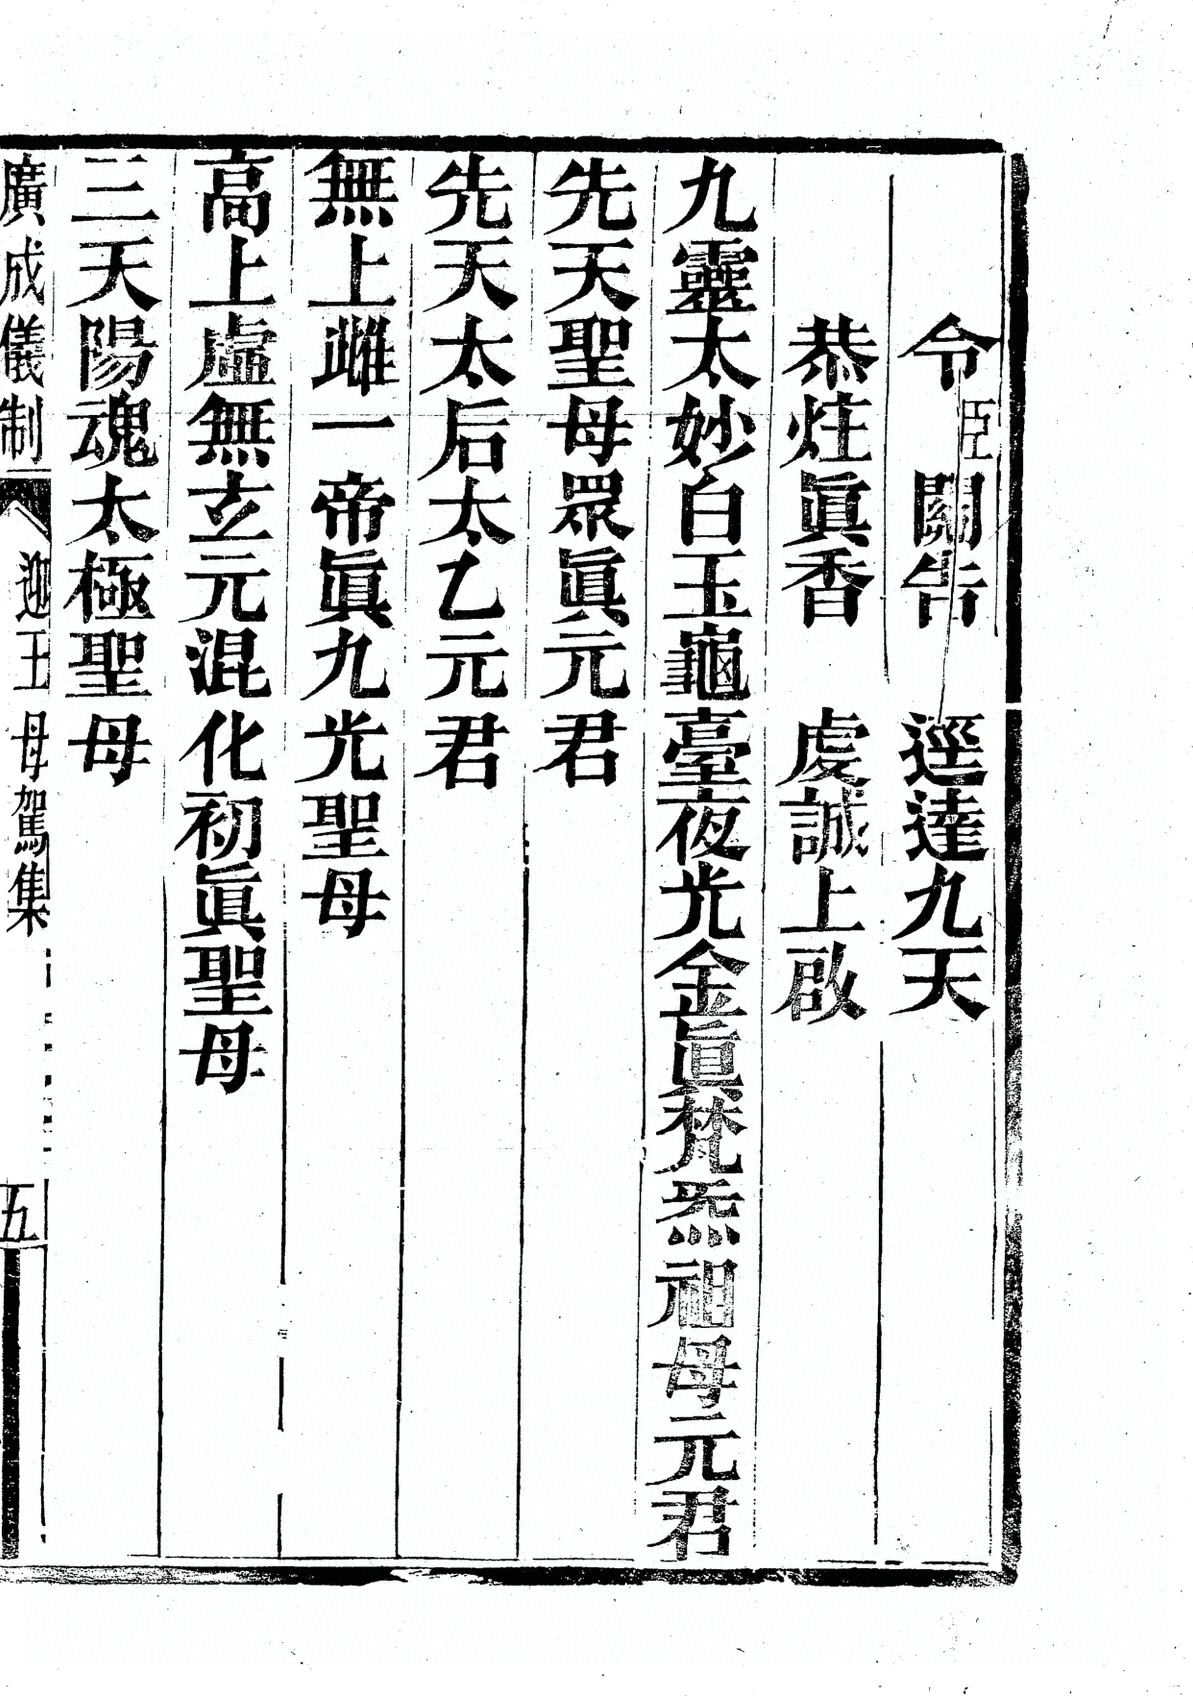 令臣關告　逕達九天
恭炷眞香　虔誠上啟
九靈太妙白玉龜臺夜光金眞梵炁祖母元君
先天聖母眾眞元君
先天太后太乙元君
無上雌一帝眞九光聖母
高上虛無玄元混化初眞聖母
三天陽魂太極聖母
廣成儀制　迎王母駕集　五